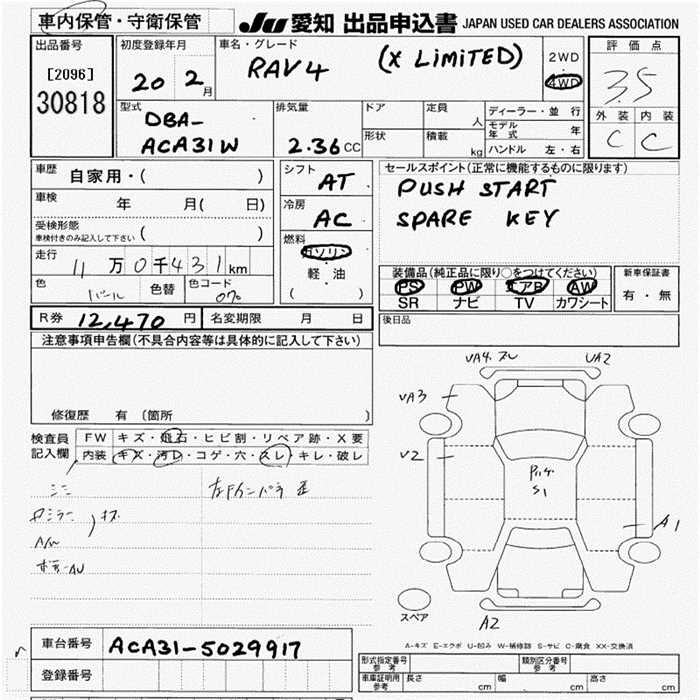 車内保管・守衛保管
JU 愛知 出品申込書 JAPAN USED CAR DEALERS ASSOCIATION
出品番号
[2096]
30818
初度登録年月
20 2月
車名・グレード
RAV4 (X LIMITED)
2WD
4WD
評価点
3.5
外装 内装
C C
型式
DBA-
ACA31W
排気量
2.36CC
ドア
定員 人
形状
積載 kg
ディーラー・並行
モデル年式 年
ハンドル 左・右
車歴
自家用・( )
車検 年 月( 日)
受検形態
車検付きのみ記入して下さい ( )
走行
11万0千431km
色 パール 色替 色コード 070
シフト
AT
冷房
AC
燃料
ガソリン
軽・油
( )
セールスポイント(正常に機能するものに限ります)
PUSH START
SPARE KEY
装備品(純正品に限り○をつけてください)
PS PW エアB AW
SR ナビ TV カワシート
新車保証書
有・無
R券 12,470円 名変期限 月 日
後日品
注意事項申告欄(不具合内容等は具体的に記入して下さい)
修復歴 有(箇所 )
検査員
記入欄
FW キズ・飛石・ヒビ割・リペア跡・X要
内装 キズ・汚レ・コゲ・穴・スレ・キレ・破レ
A/W
UA2
UA3
U2
S1
A1
A2
スペア
A-キズ E-エクボ U-凹み W-補修跡 S-サビ C-腐食 XX-交換済
車台番号 ACA31-5029917
登録番号
形式指定番号 参考
類別区分番号 参考
車庫証明用 参考 長さ cm 幅 cm 高さ cm